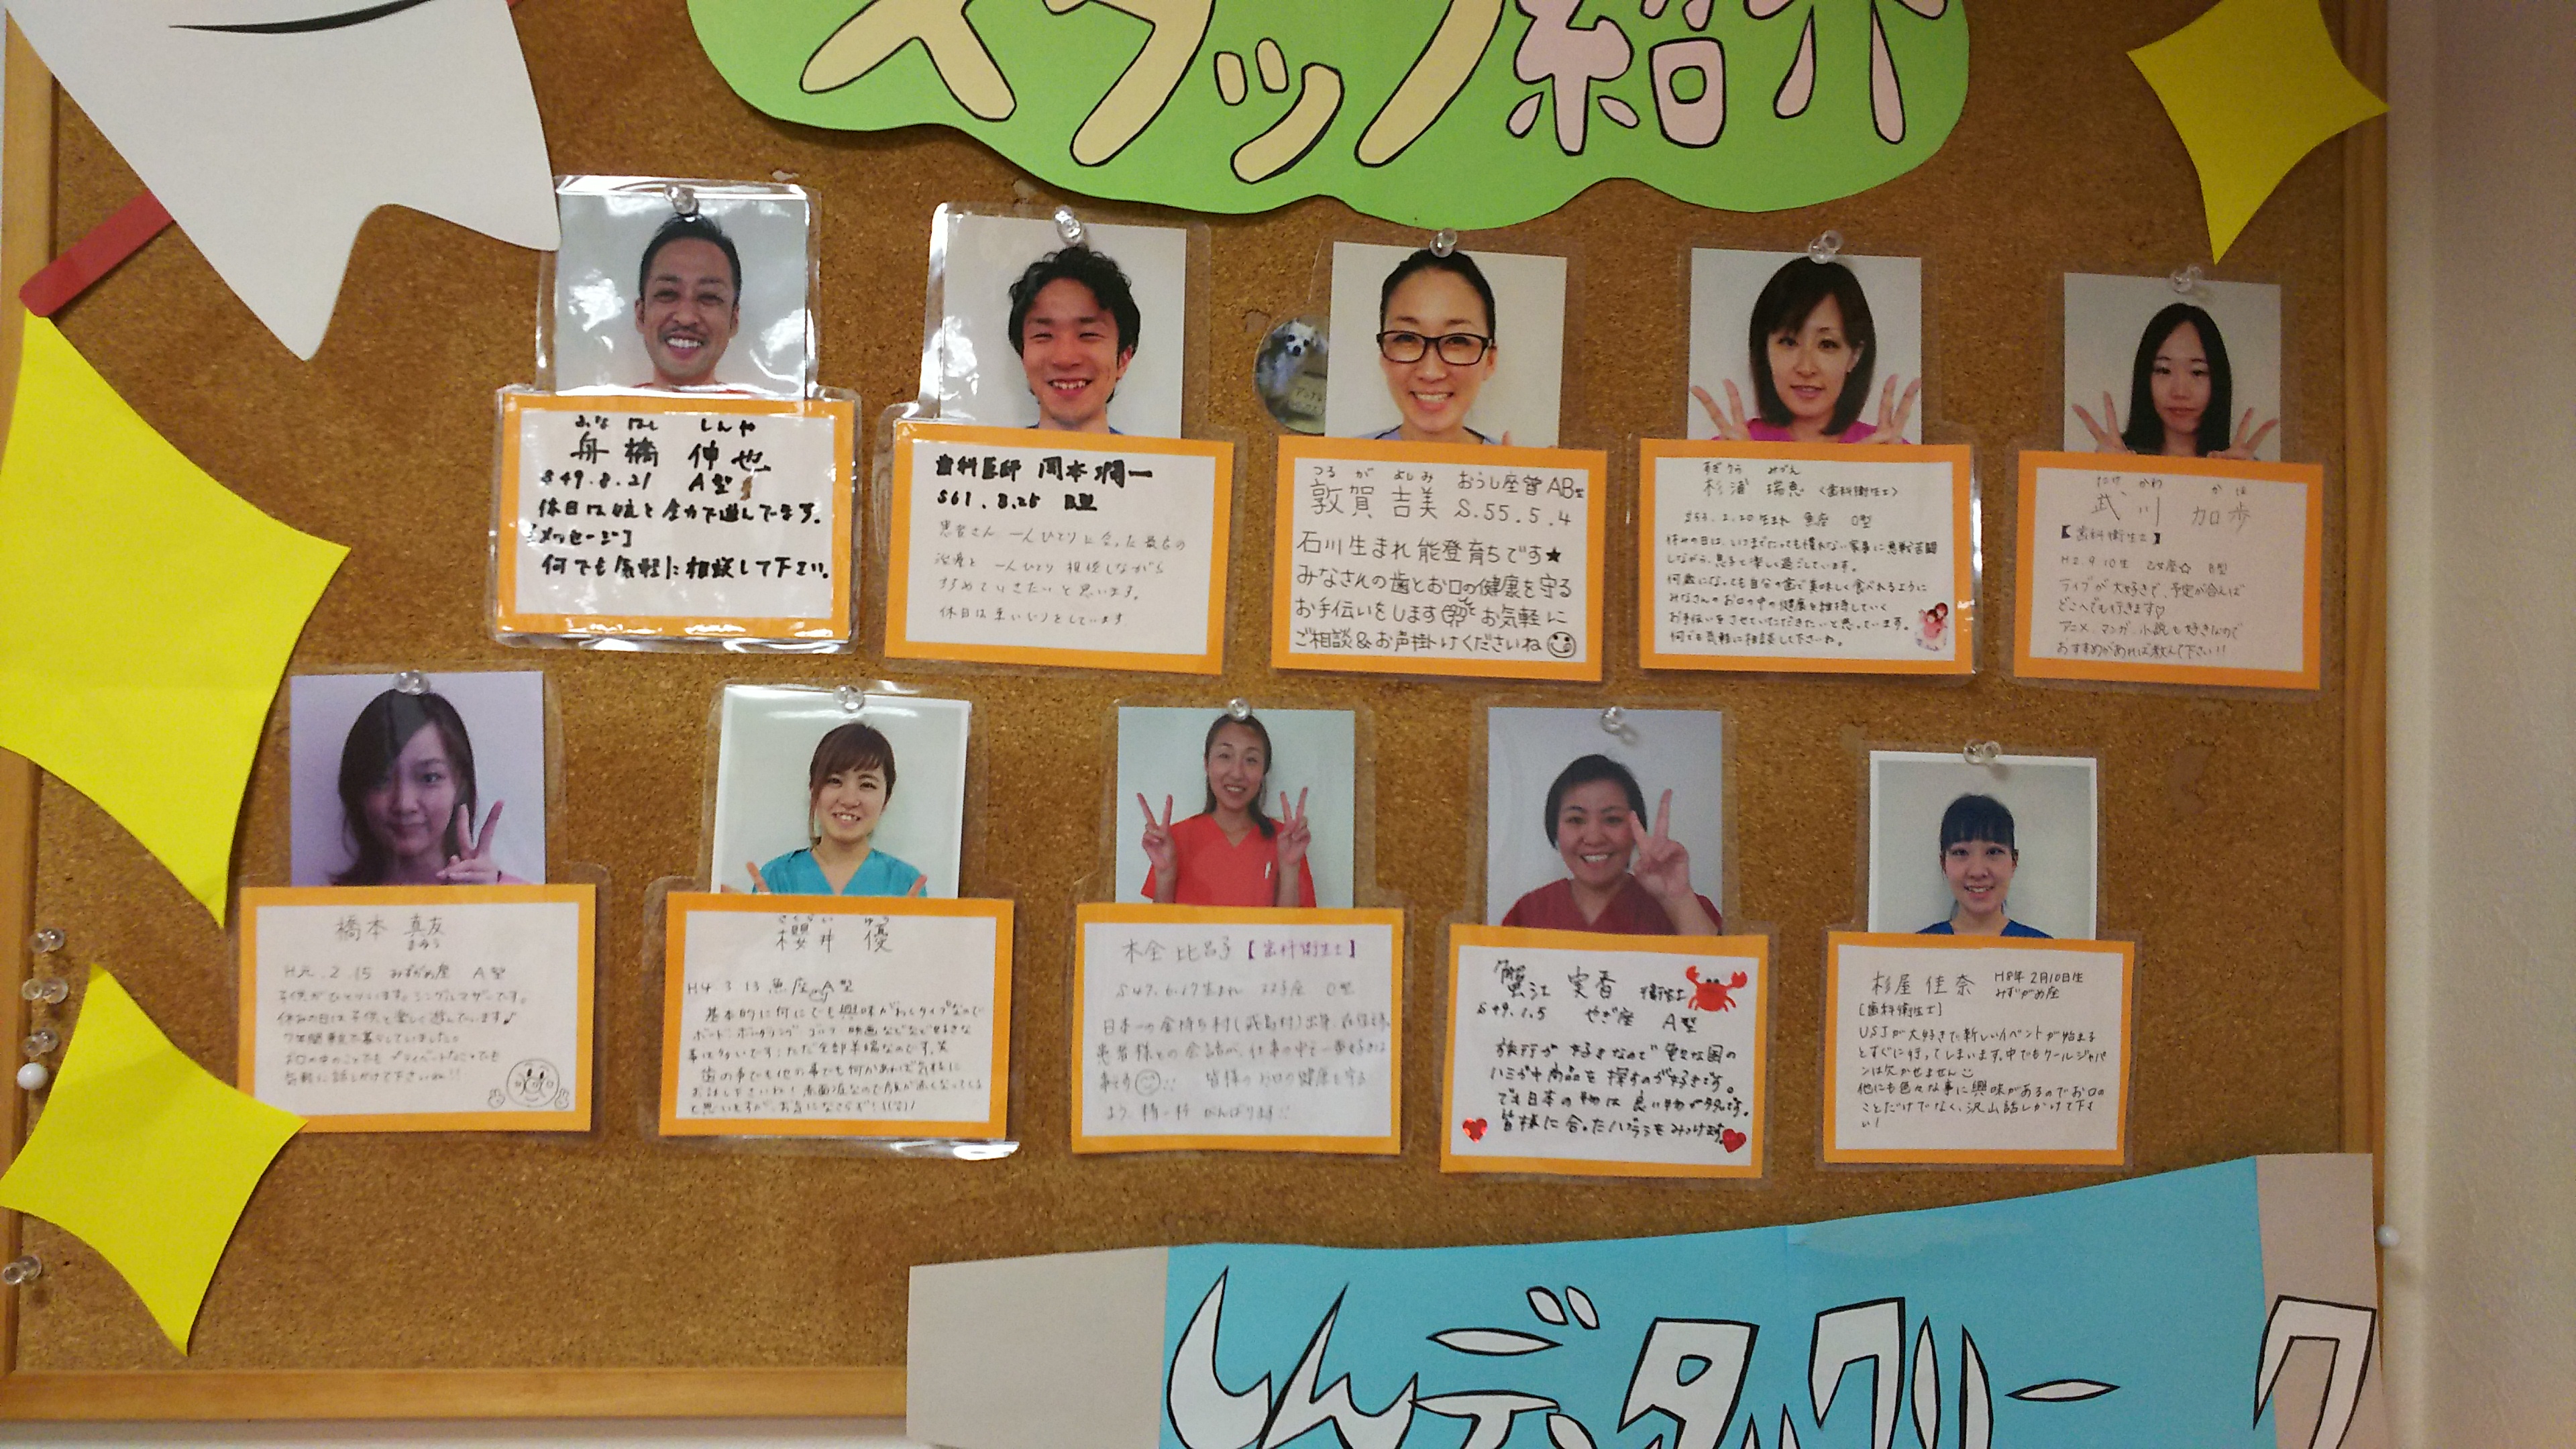 スタッフ紹介
ふな はし しんや
舟橋 伸也
S49.8.21 A型
休日は娘と全力で遊んでます。
[メッセージ]
何でも気軽に相談して下さい。
歯科医師 岡本潤一
S61.8.25 B型
患者さん一人ひとりに合った最善の
治療を一人ひとり相談しながら
すすめていきたいと思います。
休日は車いじりをしています。
つるが よしみ
敦賀 吉美 おうし座 AB型
S.55.5.4
石川生まれ能登育ちです★
みなさんの歯とお口の健康を守る
お手伝いをします お気軽に
ご相談&お声掛けくださいね
すぎうら みずえ
杉浦 瑞恵 〈歯科衛生士〉
S53.2.20生まれ 魚座 O型
休みの日は、いつまでたっても慣れない家事に悪戦苦闘
しながら、息子と楽しく過ごしています。
何歳になっても自分の歯で美味しく食べれるように
みなさんのお口の中の健康を維持していく
お手伝いをさせていただきたいと思っています。
何でも気軽に相談して下さいね。
たけ かわ か ほ
武川 加歩
【歯科衛生士】
H2.9.10生 乙女座☆ B型
ライブが大好きで、予定が合えば
どこへでも行きます♡
アニメ、マンガ、小説も好きなので
おすすめがあれば教えて下さい!!
橋本 真友
まゆう
H元.2.15 みずがめ座 A型
子供がひとりいます。シングルマザーです。
休みの日は子供と楽しく遊んでいます♪
7年間東京で暮らしていました。
お口の中のことでもプライベートなことでも
気軽に話しかけて下さいね!!
さくらい ゆう
櫻井 優
H4.3.13 魚座 A型
基本的に何にでも興味がわくタイプなので
ボード、ボルダリング、ゴルフ、映画などなど好きな
事は多いです;ただ全部半端なのです。笑
歯の事でも他の事でも何かあれば気軽に
お話し下さいね!赤面症なので顔が赤くなってくる
と思いますが、お気になさらず!!
木全 比呂子【歯科衛生士】
S47.6.17生まれ ふたご座 O型
日本一の金持ち村(飛島村)出身、在住です。
患者様との会話が、仕事の中で一番好きな
事です!! 皆様のお口の健康を守る
よう、精一杯がんばります!!
蟹江 実香 衛生士
S49.1.5 やぎ座 A型
旅行が好きなので色々な国の
ハミガキ商品を探すのが好きです。
でも日本の物は良い物が多いです。
皆様に合ったハブラシもみつけます。
杉屋 佳奈 H8年2月10日生
みずがめ座
[歯科衛生士]
USJが大好きで新しいイベントが始まる
とすぐに行ってしまいます。中でもクールジャパ
ンは欠かせません
他にも色々な事に興味があるのでお口の
ことだけでなく、沢山話しかけて下さ
い!
しんデンタルクリニック